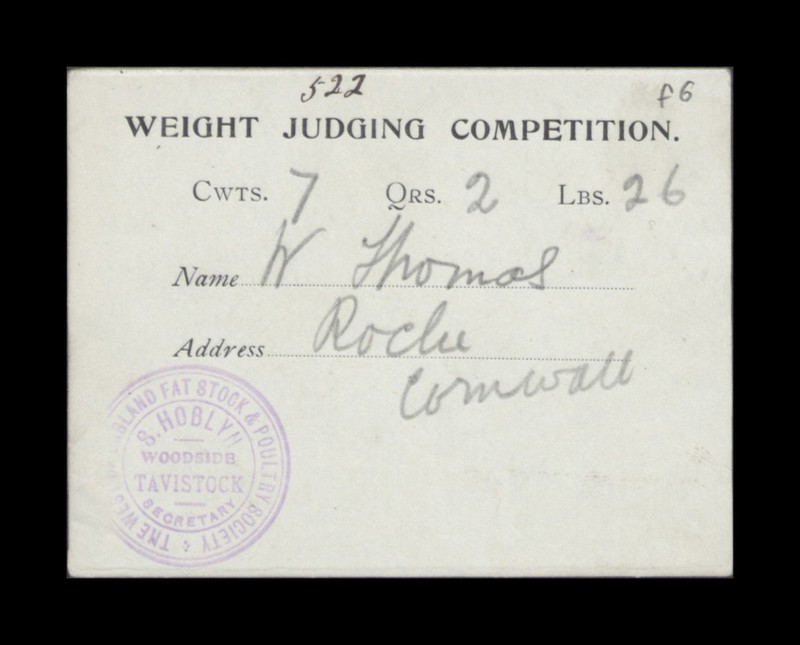 522
f6
WEIGHT JUDGING COMPETITION.
CWTS. 7 QRS. 2 LBS. 26
Name W Thomas
Address Roche
Cornwall
THE WEST OF ENGLAND FAT STOCK & POULTRY SOCIETY
S. HOBLYN
WOODSIDE
TAVISTOCK
SECRETARY